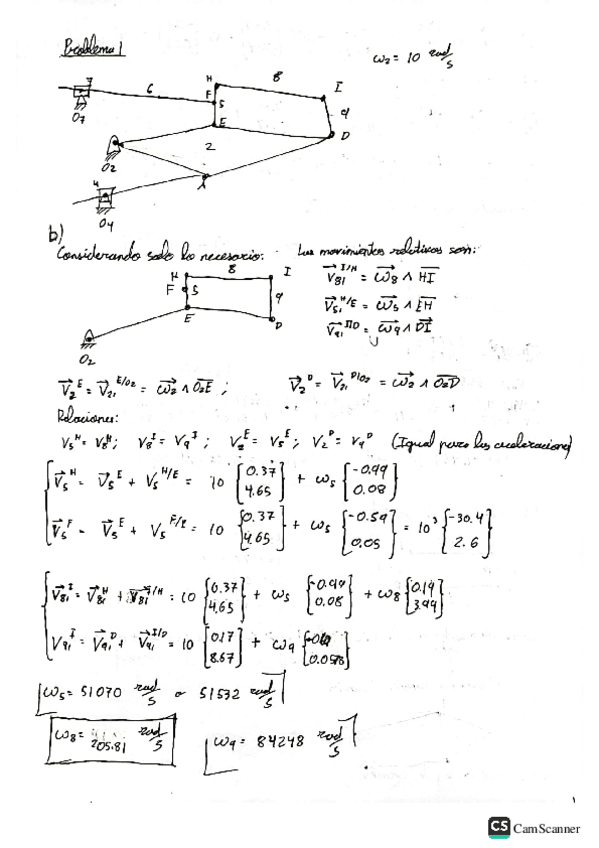 Problema 1
ω₂ = 10 rad/s
H 8 I
7 6 F S 9
O7 E D
2
O2
4 A
O4
b)
Considerando solo lo necesario: Los movimientos relativos son:
H 8 I
F S 9
E D
O2
V⃗81^I/H = ω⃗8 ∧ HI
V⃗51^H/E = ω⃗5 ∧ EH
V⃗91^I/D = ω⃗9 ∧ DI
V⃗2^E = V⃗21^E/O2 = ω⃗2 ∧ O2E ; V⃗2^D = V⃗21^D/O2 = ω⃗2 ∧ O2D
Relaciones:
V5^H = V8^H ; V8^I = V9^I ; V2^E = V5^E ; V2^D = V9^D (Igual para las aceleraciones)
V⃗5^H = V⃗5^E + V5^H/E = 10 [0.37 4.65] + ω5 {-0.99 0.08}
V⃗5^F = V⃗5^E + V5^F/E = 10 {0.37 4.65} + ω5 {-0.59 0.05} = 10³ {-30.4 2.6}
V⃗81^I = V⃗81^H + V⃗81^I/H = 10 {0.37 4.65} + ω5 {-0.99 0.08} + ω8 {0.19 3.99}
V⃗91^I = V⃗91^D + V⃗91^I/D = 10 [0.17 8.67] + ω9
ω5 = 51070 rad/s o 51532 rad/s
ω8 = 205.81 rad/s ω9 = 84248 rad/s
1
CS CamScanner